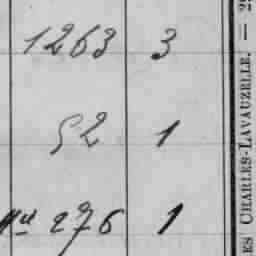 1263 3
52 1
nu 276 1
ES CHARLES-LAVAUZELLE. —